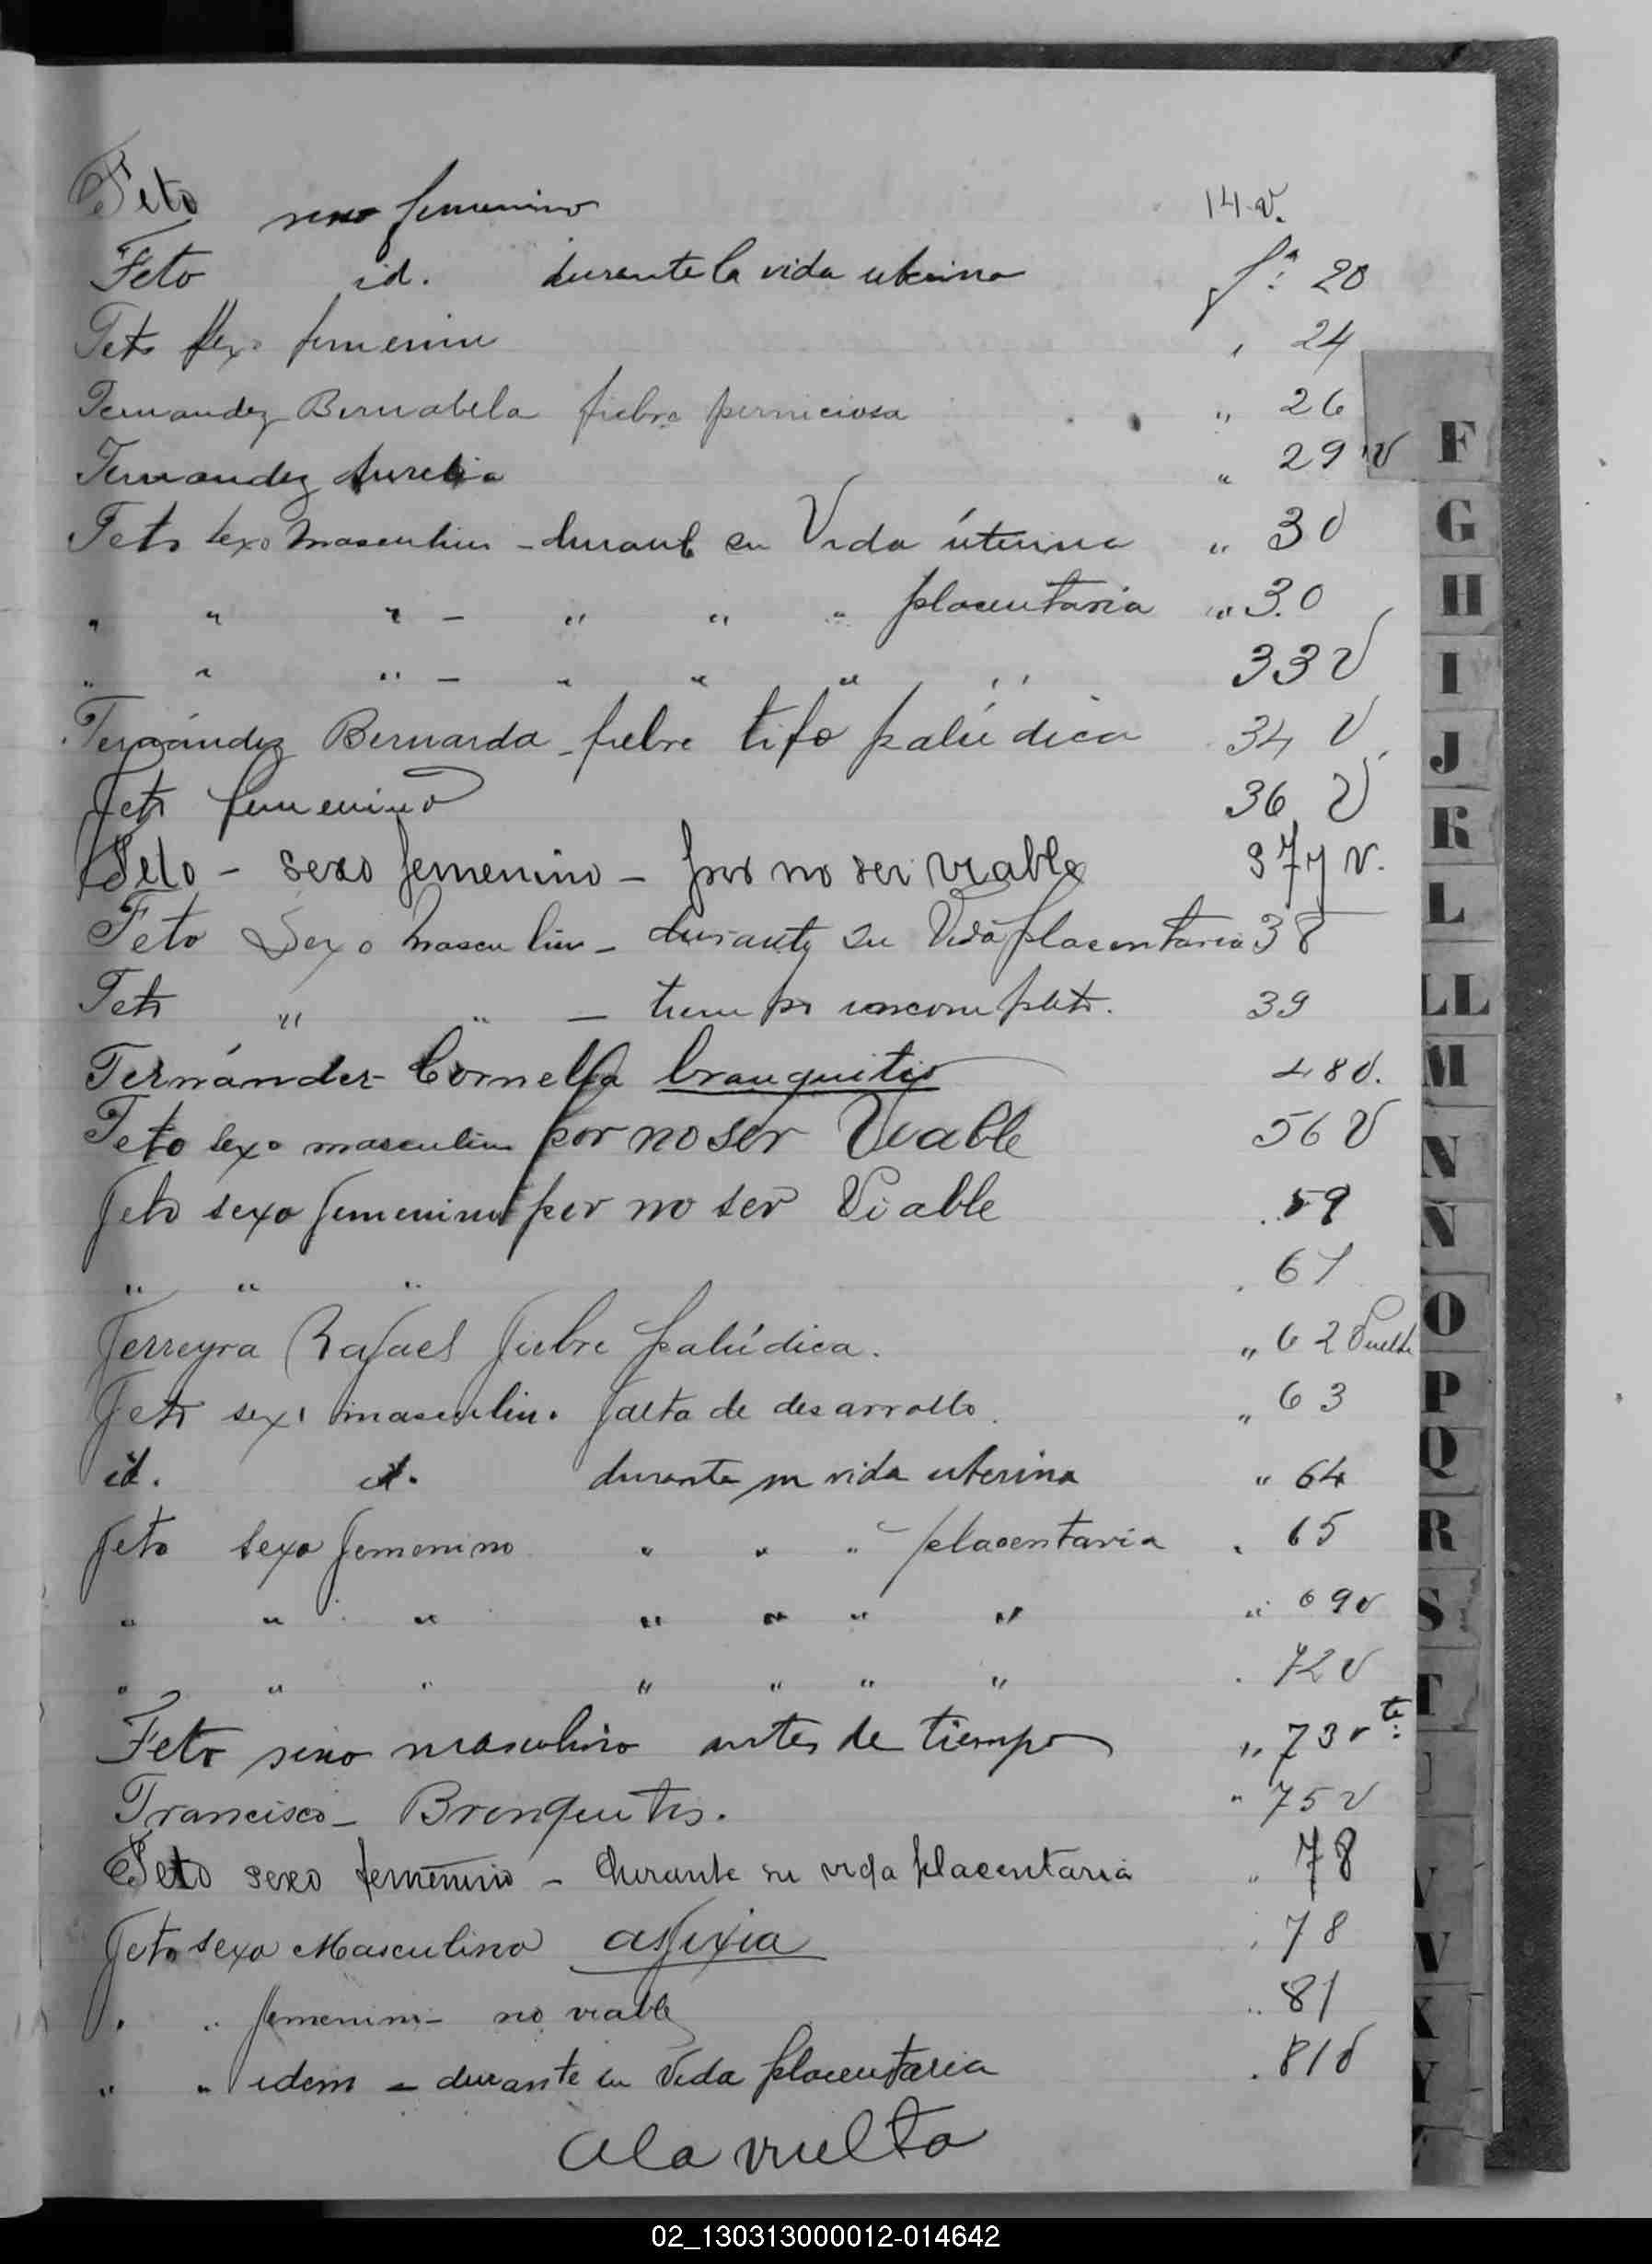 Feto sexo femenino 14 v.
Feto id. durante la vida uterina fª: 20
Feto sexo femenino " 24
Fernandez Bernabela fiebre perniciosa " 26
Fernandez Aurelia " 29 v
Feto sexo masculino - durante su Vida úterina " 30
" " " - " " " placentaria " 30
" " " - " " " " 33 v
Fernández Bernarda - fiebre tifo palúdica 34 v
Feto femenino 36 v
Feto - sexo femenino - por no ser viable 37 v.
Feto Sexo Masculino - durante su Vida placentaria 38
Feto " " - tiempo incompleto. 39
Fernández Cornelia bronquitis 48 v.
Feto sexo masculino por no ser Viable 56 v
Feto sexo femenino por no ser Viable 59
" " " 61
Ferreyra Rafael fiebre palúdica. " 62 Vuelta
Feto sexo masculino falta de desarrollo. " 63
id. id. durante su vida uterina " 64
Feto sexo femenino " " " placentaria " 65
" " " " " " " " 69 v
" " " " " " " " 72 v
Feto sexo masculino antes de tiempo " 73 vta:
Francisco - Bronquitis. " 75 v
Feto sexo femenino - durante su vida placentaria " 78
Feto sexo Masculino asfixia " 78
" " femenino - no viable " 81
" " idem - durante su Vida placentaria " 81 v
A la vuelta
F
G
H
I
J
K
L
LL
M
N
Ñ
O
P
Q
R
S
T
U
V
X
Y
Z
02_130313000012-014642